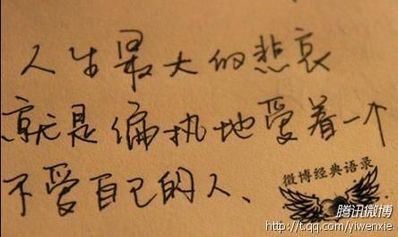 人生最大的悲哀
就是偏执地爱着一个
不爱自己的人、
微博经典语录
腾讯微博
http://t.qq.com/yiwenxie